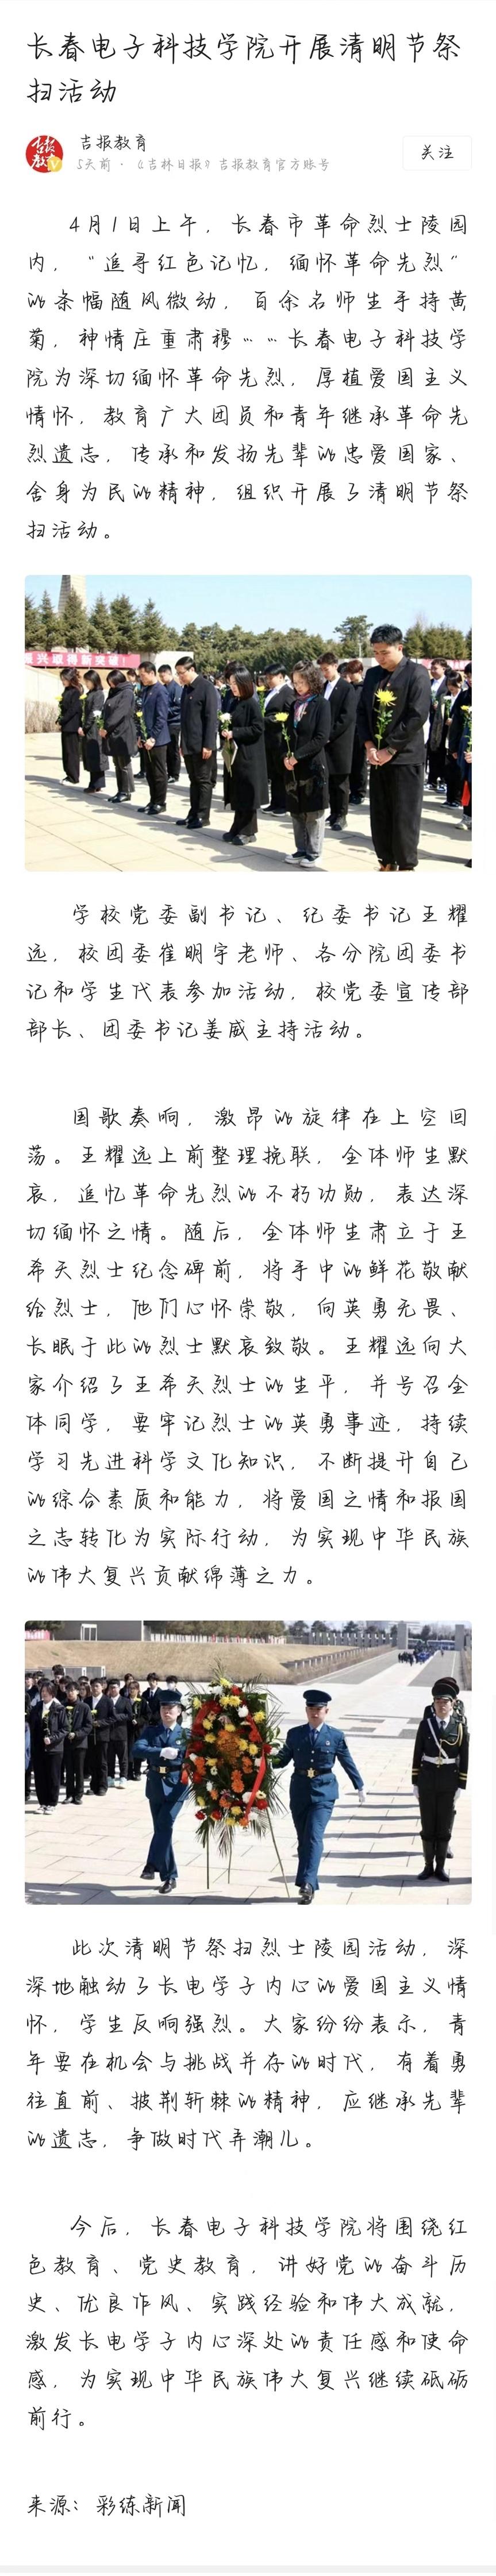 长春电子科技学院开展清明节祭
扫活动
吉报教育
吉报教育
5天前 · 《吉林日报》吉报教育官方账号
关注
4月1日上午，长春市革命烈士陵园
内，“追寻红色记忆，缅怀革命先烈”
的条幅随风微动，百余名师生手持黄
菊，神情庄重肃穆……长春电子科技学
院为深切缅怀革命先烈，厚植爱国主义
情怀，教育广大团员和青年继承革命先
烈遗志，传承和发扬先辈的忠爱国家、
舍身为民的精神，组织开展了清明节祭
扫活动。
兴取得新突破！
学校党委副书记、纪委书记王耀
远，校团委崔明宇老师、各分院团委书
记和学生代表参加活动，校党委宣传部
部长、团委书记姜威主持活动。
国歌奏响，激昂的旋律在上空回
荡。王耀远上前整理挽联，全体师生默
哀，追忆革命先烈的不朽功勋，表达深
切缅怀之情。随后，全体师生肃立于王
希天烈士纪念碑前，将手中的鲜花敬献
给烈士，他们心怀崇敬，向英勇无畏、
长眠于此的烈士默哀致敬。王耀远向大
家介绍了王希天烈士的生平，并号召全
体同学，要牢记烈士的英勇事迹，持续
学习先进科学文化知识，不断提升自己
的综合素质和能力，将爱国之情和报国
之志转化为实际行动，为实现中华民族
的伟大复兴贡献绵薄之力。
此次清明节祭扫烈士陵园活动，深
深地触动了长电学子内心的爱国主义情
怀，学生反响强烈。大家纷纷表示，青
年要在机会与挑战并存的时代，有着勇
往直前、披荆斩棘的精神，应继承先辈
的遗志，争做时代弄潮儿。
今后，长春电子科技学院将围绕红
色教育、党史教育，讲好党的奋斗历
史、优良作风、实践经验和伟大成就，
激发长电学子内心深处的责任感和使命
感，为实现中华民族伟大复兴继续砥砺
前行。
来源：彩练新闻